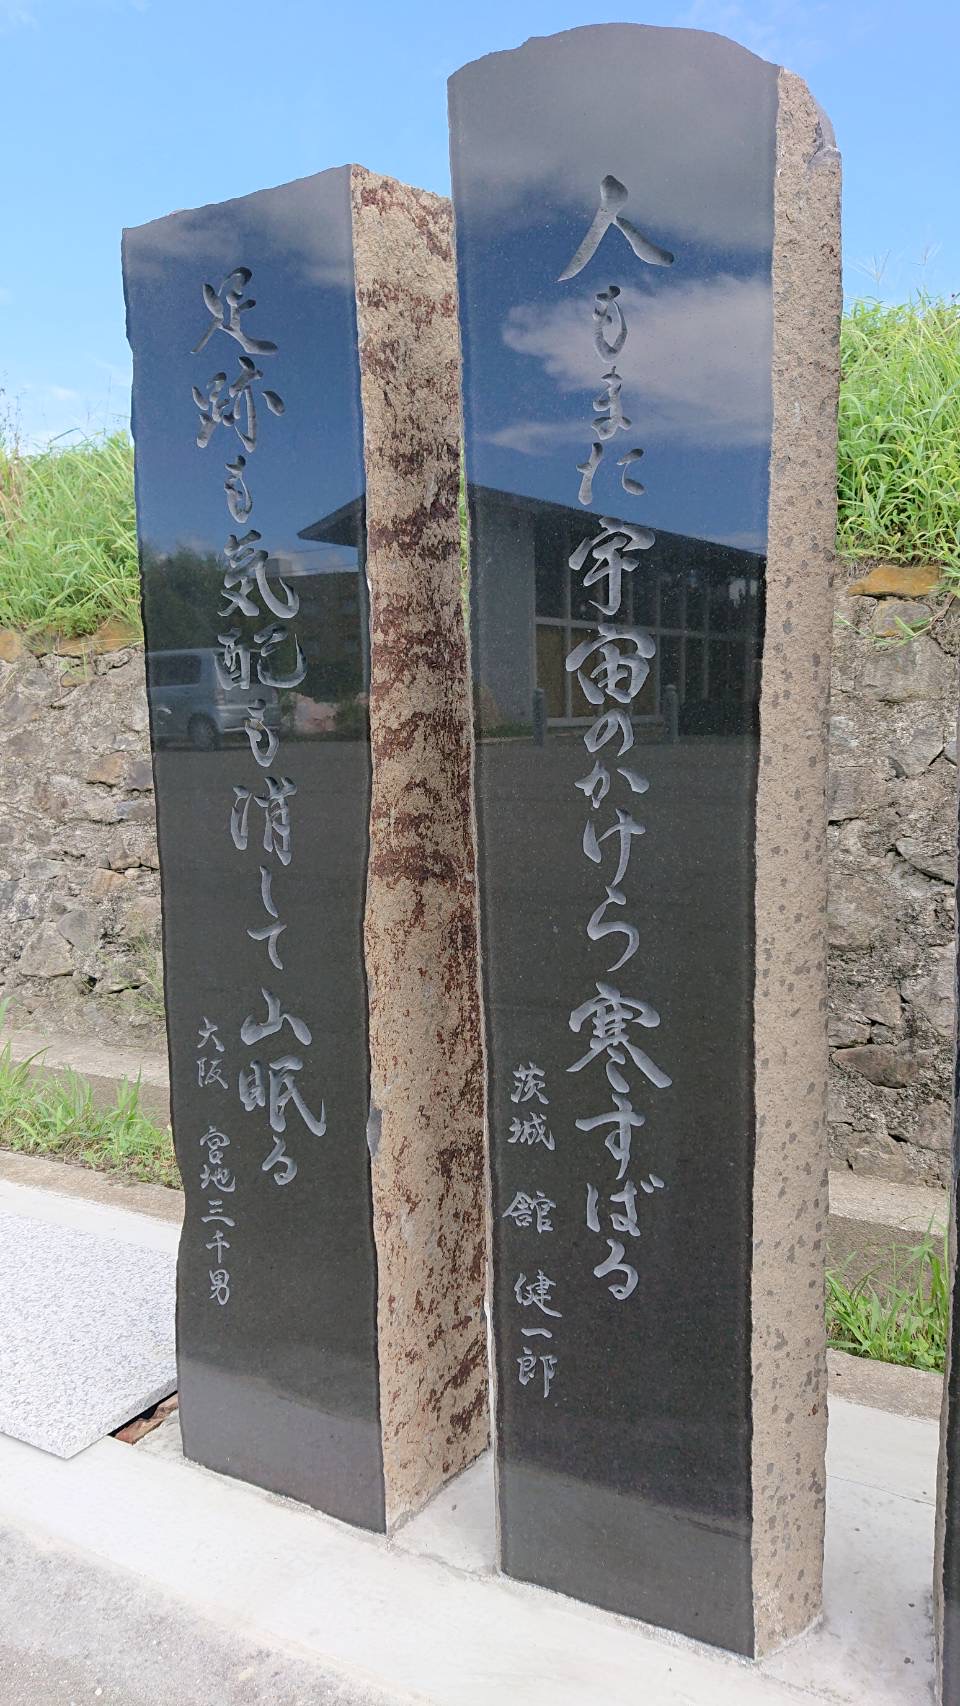 人もまた宇宙のかけら寒すばる
茨城 舘 健一郎
足跡も気配も消して山眠る
大阪 宮地三千男